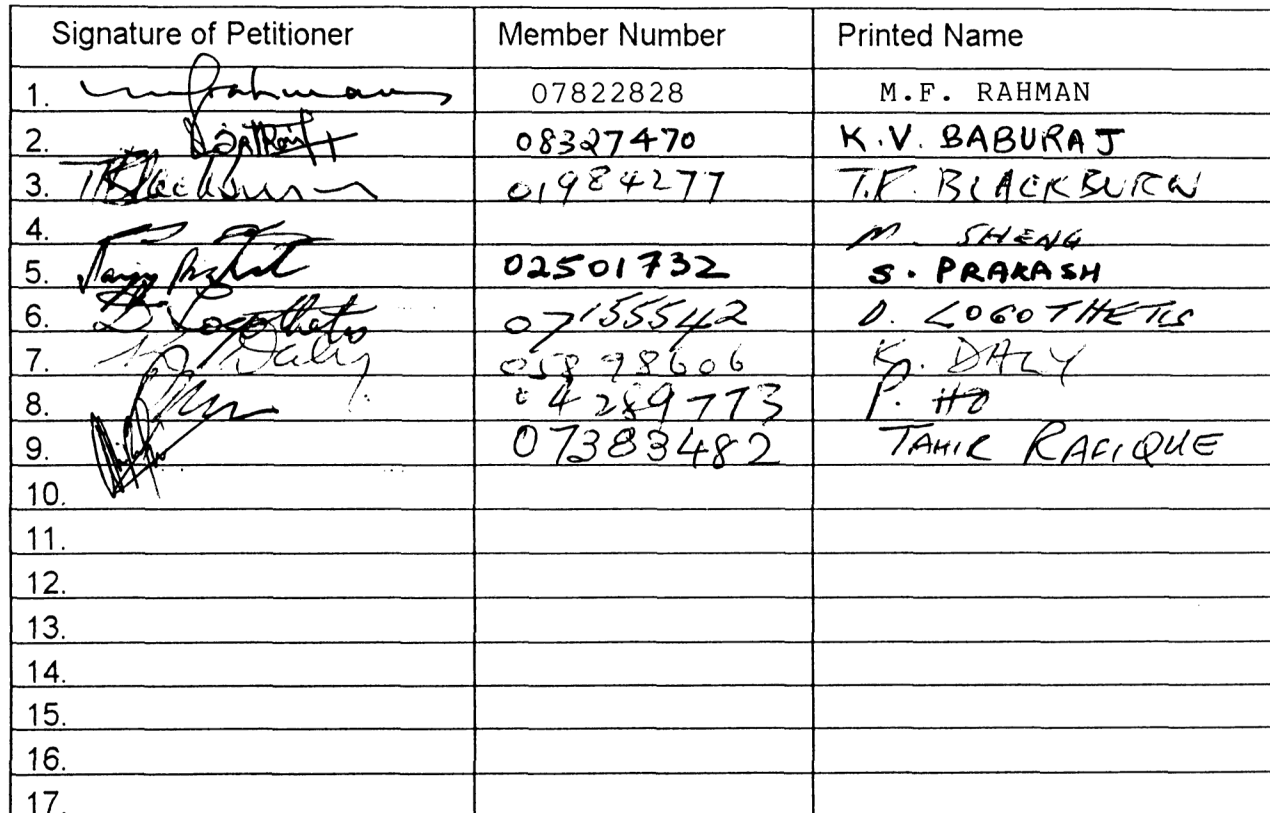 Signature of Petitioner Member Number Printed Name
1. 07822828 M.F. RAHMAN
2. 08327470 K.V. BABURAJ
3. TRBlackburn 01984277 T.R. BLACKBURN
4. M. SHENG
5. 02501732 S. PRAKASH
6. D. Logothetis 07155542 D. LOGOTHETIS
7. K. Daly 05898606 K. DALY
8. 04289773 P. HO
9. 07383482 TAHIR RAFIQUE
10.
11.
12.
13.
14.
15.
16.
17.